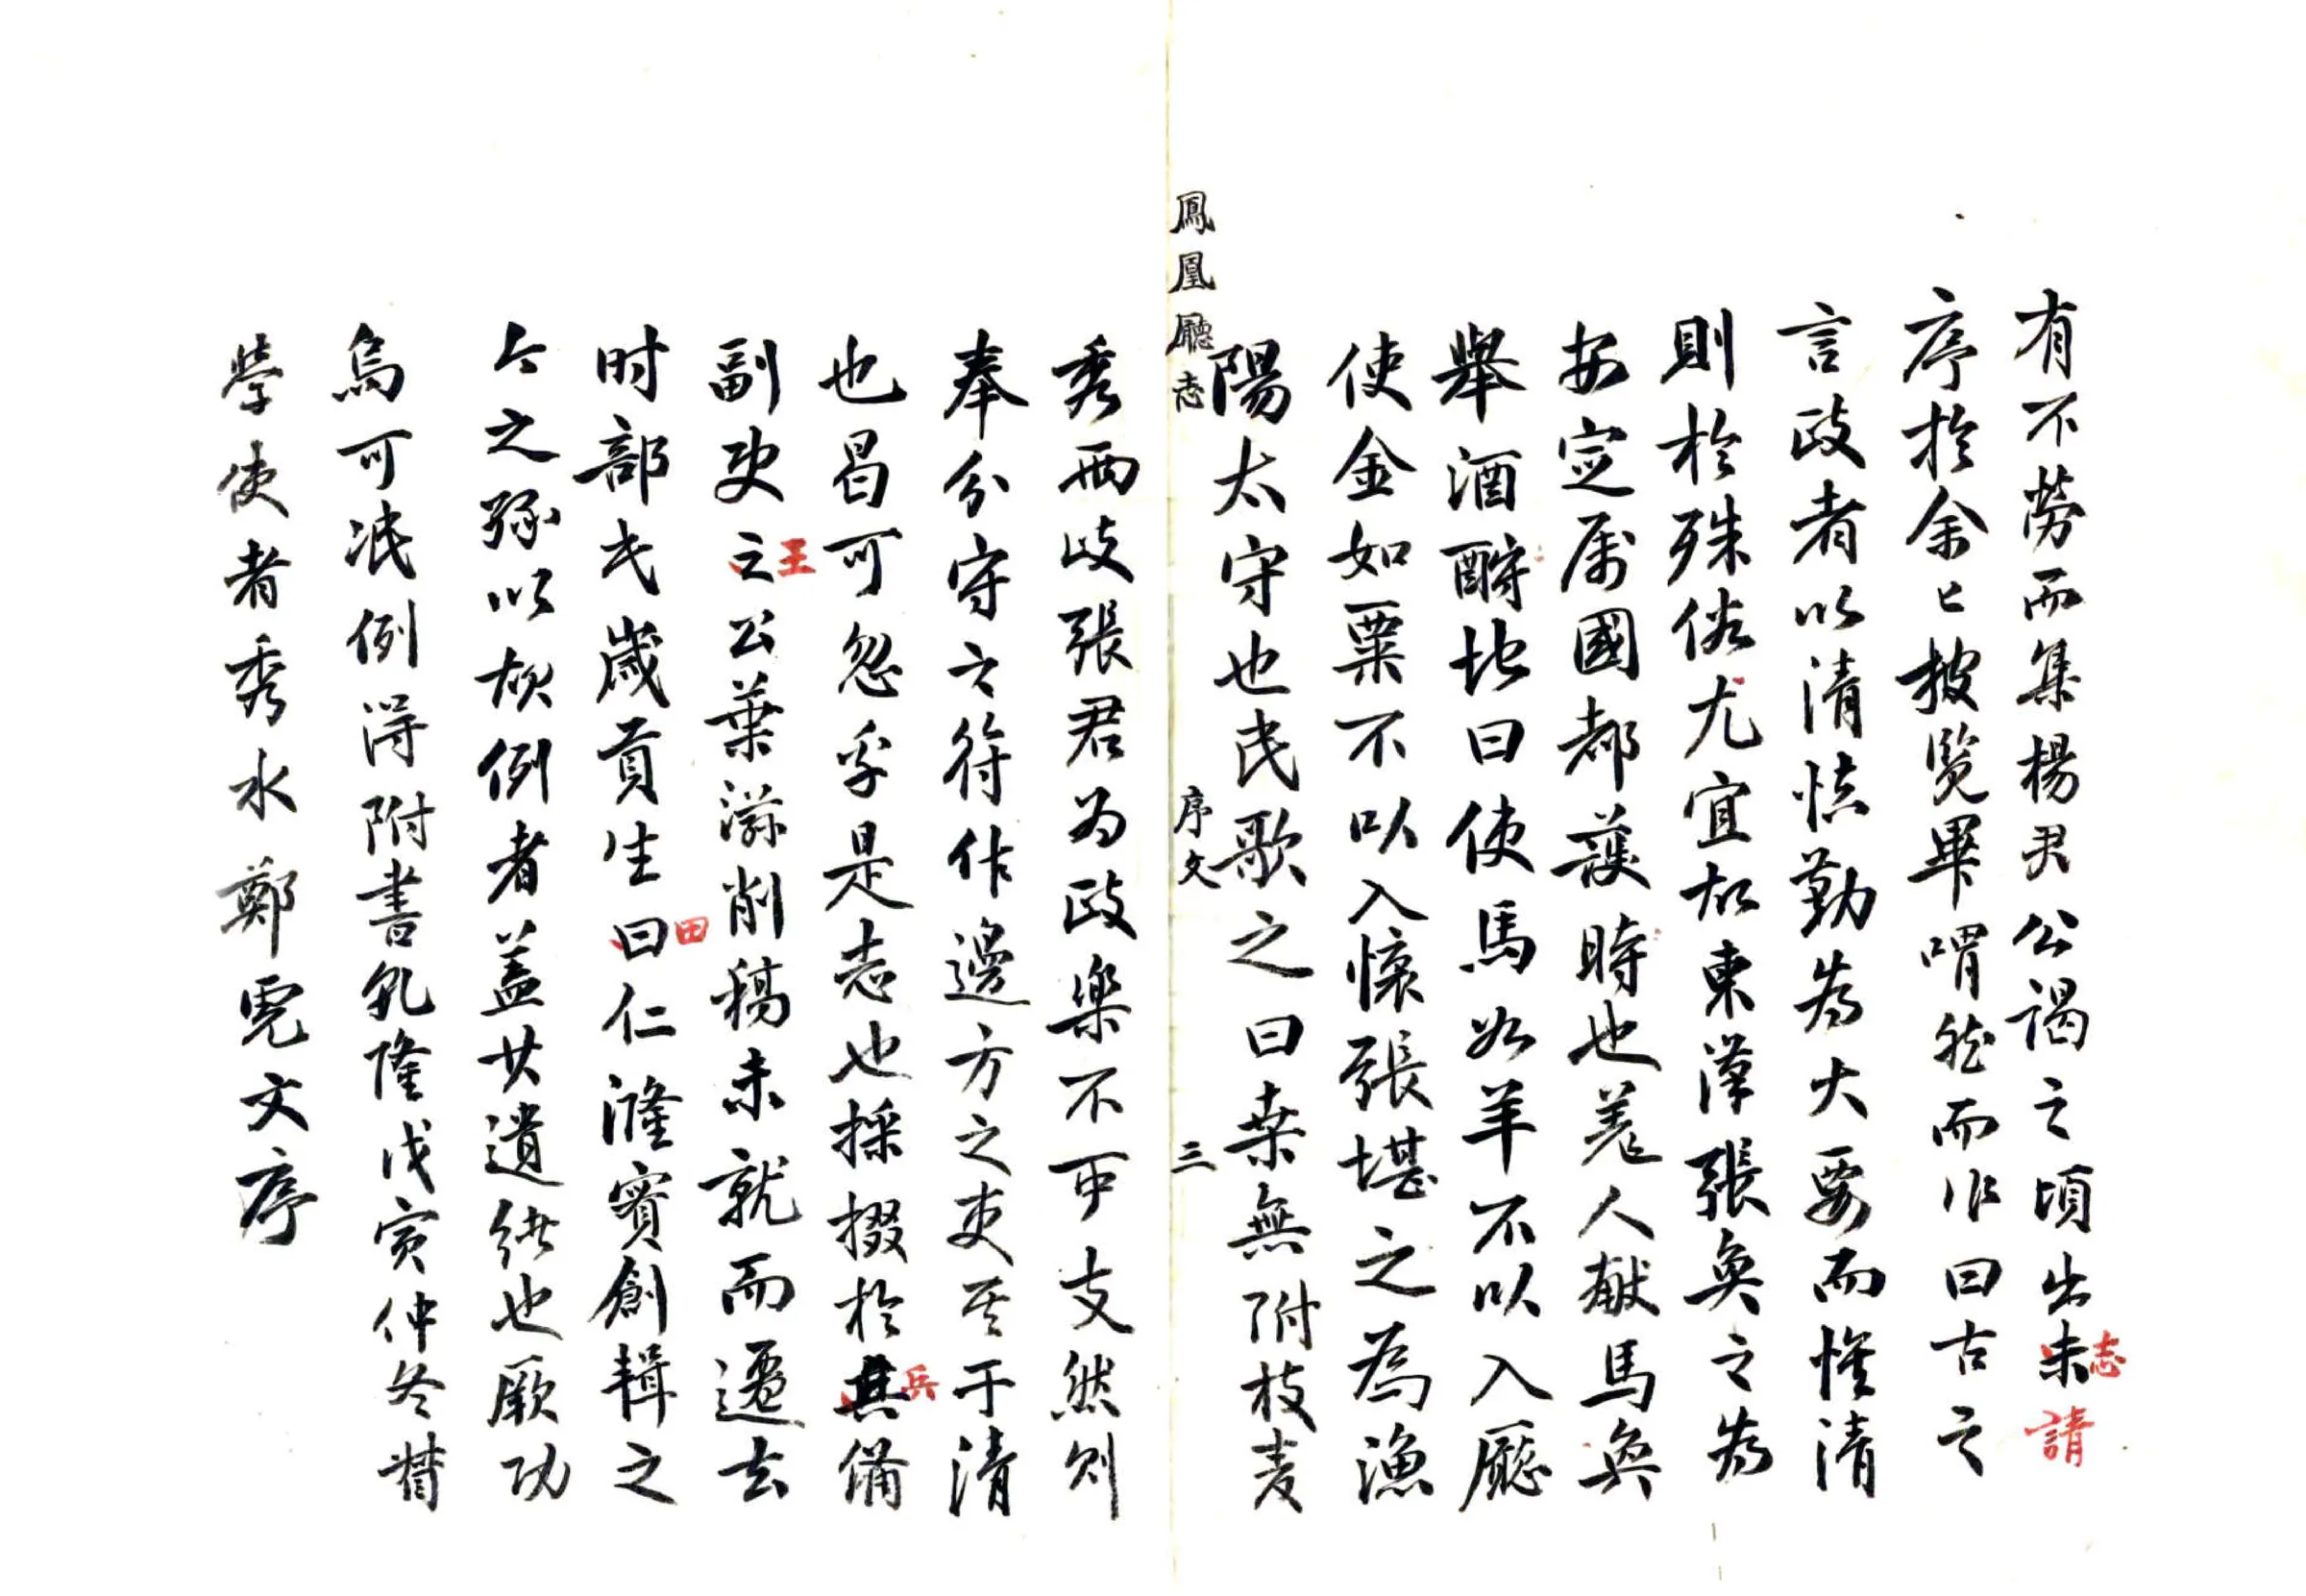 有不勞而集楊君公謁之頃出未志請
序於余已披覽畢喟然而作曰古之
言政者以清慎勤為大要而惟清
則於殊俗尤宜故東漢張奐之為
安定属國都護時也羗人献馬奐
舉酒酹地曰使馬如羊不以入廐
使金如粟不以入懷張堪之為漁
陽太守也民歌之曰桒無附枝麦
鳳凰廳志 序文 三
秀兩歧張君為政樂不可支然則
奉分守之符作邊方之吏其于清
也曷可忽乎是志也採掇於其兵備
副史之王公葉滋削稿未就而遷去
时部民歲貢生曰田仁漋實創輯之
今之孫以故例者盖其遺緒也厥功
烏可泯例得附書乹隆戊寅仲冬督
學使者秀水鄭虎文序